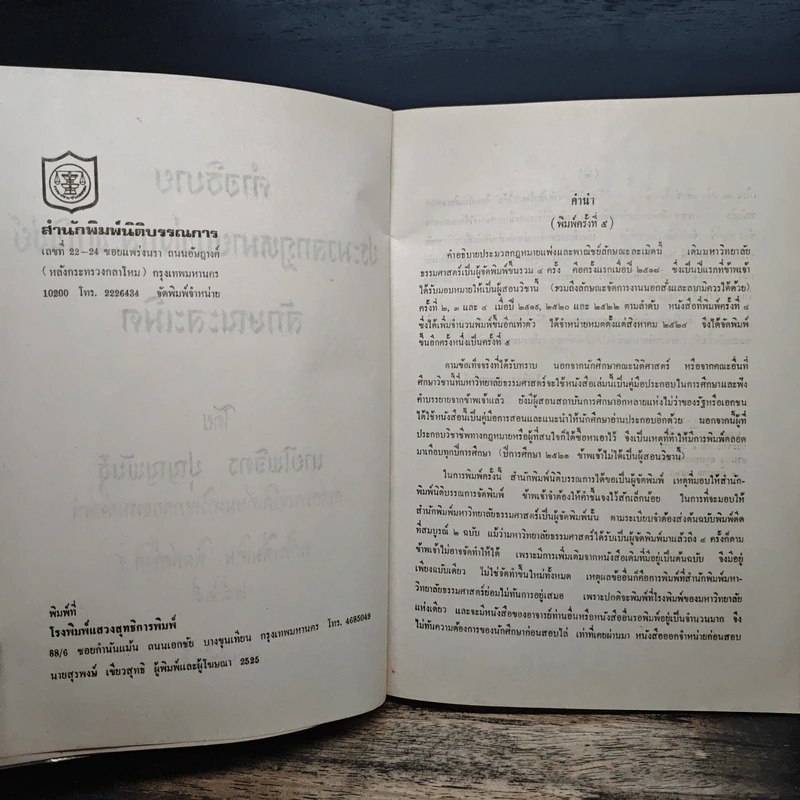 สำนักพิมพ์นิติบรรณการ
เลขที่ 22-24 ซอยแพร่งนรา ถนนอัษฎางค์
(หลังกระทรวงกลาโหม) กรุงเทพมหานคร
10200 โทร. 2226434 จัดพิมพ์จำหน่าย
พิมพ์ที่
โรงพิมพ์แสวงสุทธิการพิมพ์
88/6 ซอยกำนันแม้น ถนนเอกชัย บางขุนเทียน กรุงเทพมหานคร โทร. 4685049
นายสุรพงษ์ เชี่ยวสุทธิ ผู้พิมพ์และผู้โฆษณา 2525
คำนำ
(พิมพ์ครั้งที่ ๕)
คำอธิบายประมวลกฎหมายแพ่งและพาณิชย์ลักษณะละเมิดนี้ เดิมมหาวิทยาลัย
ธรรมศาสตร์เป็นผู้จัดพิมพ์ขึ้นรวม ๔ ครั้ง คือครั้งแรกเมื่อปี ๒๕๑๘ ซึ่งเป็นปีแรกที่ข้าพเจ้า
ได้รับมอบหมายให้เป็นผู้สอนวิชานี้ (รวมถึงลักษณะจัดการงานนอกสั่งและลาภมิควรได้ด้วย)
ครั้งที่ ๒, ๓ และ ๔ เมื่อปี ๒๕๑๙, ๒๕๒๐ และ ๒๕๒๒ ตามลำดับ หนังสือที่พิมพ์ครั้งที่ ๔
ซึ่งได้เพิ่มจำนวนพิมพ์ขึ้นอีกเท่าตัว ได้จำหน่ายหมดตั้งแต่สิงหาคม ๒๕๒๔ จึงได้จัดพิมพ์
ขึ้นอีกครั้งหนึ่งเป็นครั้งที่ ๕
ตามข้อเท็จจริงที่ได้รับทราบ นอกจากนักศึกษาคณะนิติศาสตร์ หรือจากคณะอื่นที่
ศึกษาวิชานี้ที่มหาวิทยาลัยธรรมศาสตร์จะใช้หนังสือเล่มนี้เป็นคู่มือประกอบในการศึกษาและฟัง
คำบรรยายจากข้าพเจ้าแล้ว ยังมีผู้สอนสถาบันการศึกษาอีกหลายแห่งไม่ว่าของรัฐหรือเอกชน
ได้ใช้หนังสือนี้เป็นคู่มือการสอนและแนะนำให้นักศึกษาอ่านประกอบอีกด้วย นอกจากนี้ผู้ที่
ประกอบวิชาชีพทางกฎหมายหรือผู้ที่สนใจก็ได้ซื้อหาเอาไว้ จึงเป็นเหตุที่ทำให้มีการพิมพ์ตลอด
มาเกือบทุกปีการศึกษา (ปีการศึกษา ๒๕๒๑ ข้าพเจ้าไม่ได้เป็นผู้สอนวิชานี้)
ในการพิมพ์ครั้งนี้ สำนักพิมพ์นิติบรรณการได้ขอเป็นผู้จัดพิมพ์ เหตุที่มอบให้สำนัก-
พิมพ์นิติบรรณการจัดพิมพ์ ข้าพเจ้าจำต้องให้คำชี้แจงไว้สักเล็กน้อย ในการที่จะมอบให้
สำนักพิมพ์มหาวิทยาลัยธรรมศาสตร์เป็นผู้จัดพิมพ์นั้น ตามระเบียบจำต้องส่งต้นฉบับพิมพ์ดีด
ที่สมบูรณ์ ๒ ฉบับ แม้ว่ามหาวิทยาลัยธรรมศาสตร์ได้รับเป็นผู้จัดพิมพ์มาแล้วถึง ๔ ครั้งก็ตาม
ข้าพเจ้าไม่อาจจัดทำให้ได้ เพราะมีการเพิ่มเติมจากหนังสือเดิมที่มีอยู่เป็นต้นฉบับ จึงมีอยู่
เพียงฉบับเดียว ไม่ใช่จัดทำขึ้นใหม่ทั้งหมด เหตุผลข้ออื่นก็คือการพิมพ์ที่สำนักพิมพ์มหา-
วิทยาลัยธรรมศาสตร์ย่อมไม่ทันการอยู่เสมอ เพราะปกติจะพิมพ์ที่โรงพิมพ์ของมหาวิทยาลัย
แห่งเดียว และจะมีหนังสือของอาจารย์ท่านอื่นหรือหนังสืออื่นรอพิมพ์อยู่เป็นจำนวนมาก จึง
ไม่ทันความต้องการของนักศึกษาก่อนสอบไล่ เท่าที่เคยผ่านมา หนังสือออกจำหน่ายก่อนสอบ